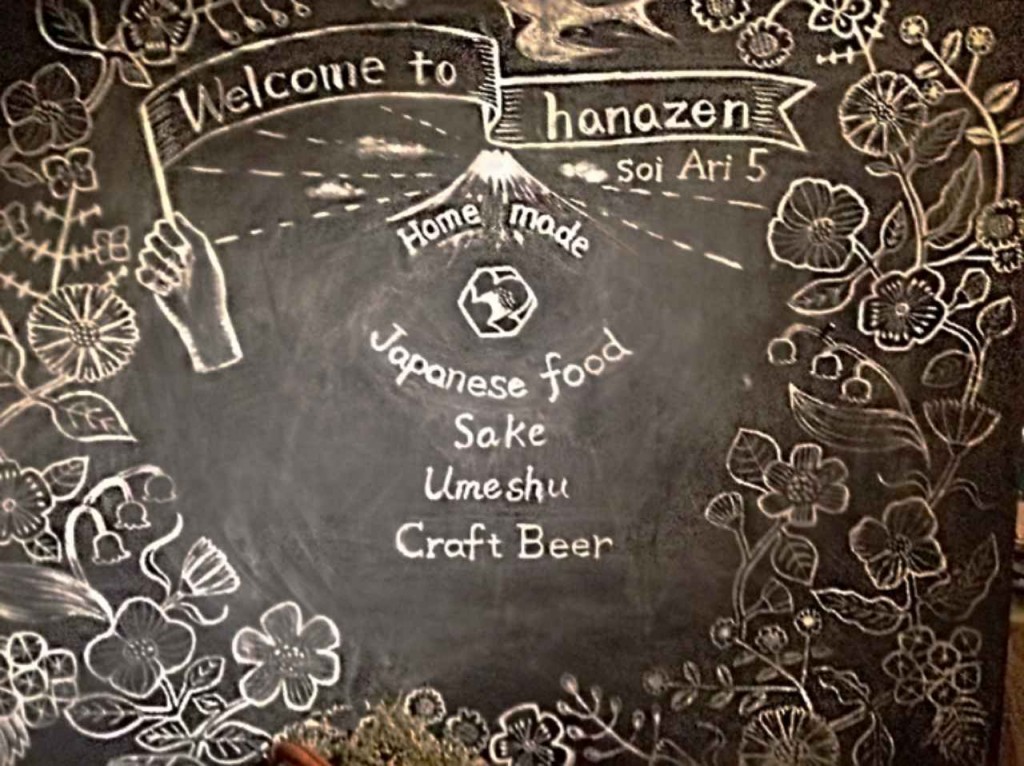 Welcome to
hanazen
soi Ari 5
Home made
Japanese food
Sake
Umeshu
Craft Beer